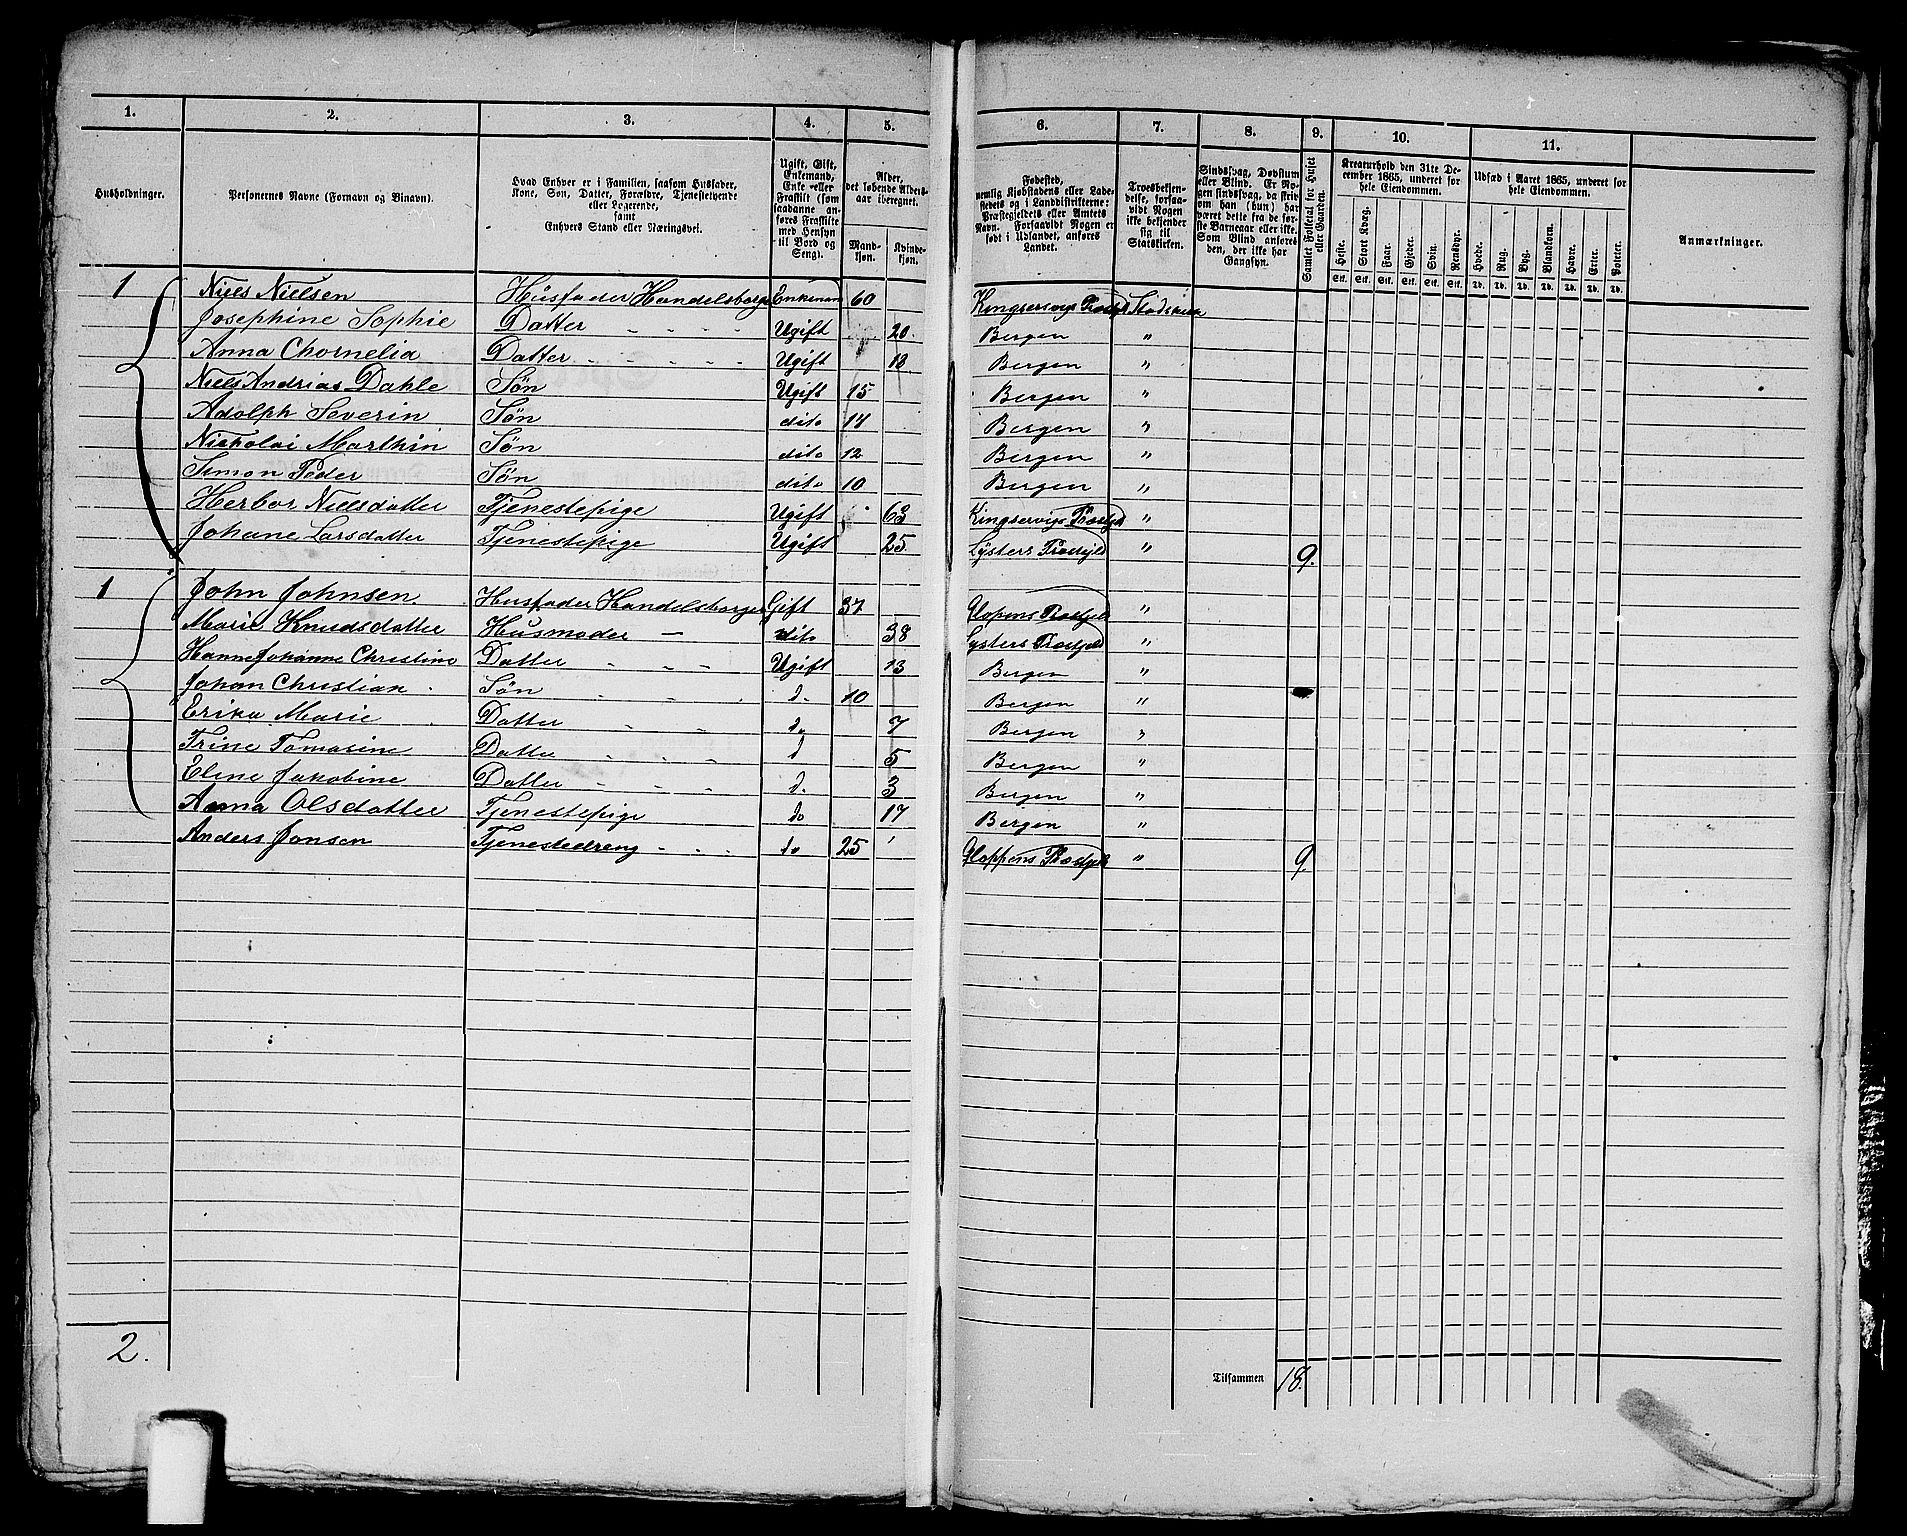 1. 2. 3. 4. 5. 6. 7. 8. 9. 10. 11.
Husholdninger.
Personernes Navne (Fornavn og Binavn).
Hvad Enhver er i Familien, saasom Husfader, Kone, Søn, Datter, Forældre, Tjenestetyende eller Logerende, samt Enhvers Stand eller Næringsvei.
Ugift, Gift, Enkemand, Enke eller Fraskilt (som saadanne anføres Fraskilte med Hensyn til Bord og Seng).
Alder, det løbende Aldersaar iberegnet.
Mandkjøn. Kvindekjøn.
Fødested, nemlig Kjøbstadens eller Ladestedets og i Landdistrikterne: Præstegjeldets eller Amtets Navn. Forsaavidt Nogen er født i Udlandet, anføres Landet.
Troesbekjendelse, forsaavidt Nogen ikke bekjender sig til Statskirken.
Sindssvag, Døvstum eller Blind. Er Nogen sindssvag, da skrives om han (hun) har været dette fra de første Barneaar eller ikke. Som Blind anføres den, der ikke har Gangsyn.
Samlet Folketal for Huset eller Gaarden.
Kreaturhold den 31te December 1865, underet for hele Eiendommen.
Heste. Stort Kvæg. Faar. Gjeder. Svin. Rensdyr.
Stk. Stk. Stk. Stk. Stk. Stk.
Udsæd i Aaret 1865, underet for hele Eiendommen.
Hvede. Rug. Byg. Blandkorn. Havre. Erter. Poteter.
Td. Td. Td. Td. Td. Td. Td.
Anmærkninger.
1 Niels Nielsen Husfader Handelsborger Enkemand 60 Kingservigs Præstgj Stadskirken
Josephine Sophie Datter Ugift 20 Bergen "
Anna Chornelia Datter Ugift 18 Bergen "
Niels Andrias Dahle Søn Ugift 15 Bergen "
Adolph Severin Søn dito 14 Bergen "
Nickolai Marthin Søn dito 12 Bergen "
Simon Peder Søn dito 10 Bergen "
Herbor Nielsdatter Tjenestepige Ugift 63 Kingservigs Præstgjl "
Johane Larsdatter Tjenestepige Ugift 25 Lysters Præstgjld " 9.
1 John Johnsen. Husfader Handelsborger Gift 37 Glopens Præstgjeld "
Marie Knudsdatter Husmoder dito 38 Lysters Præstgjeld "
Hanne Johanne Christine Datter Ugift 13 Bergen "
Johan Christian Søn d. 10 Bergen "
Erika Marie Datter do 7 Bergen "
Trine Tomasine Datter d 5 Bergen "
Eline Jakobine Datter d. 3 Bergen "
Anna Olsdatter Tjenestepige do 17 Bergen "
Anders Jonsen Tjenestedreng do 25 Gloppens Præstgjeld " 9
2.
Tilsammen 18.